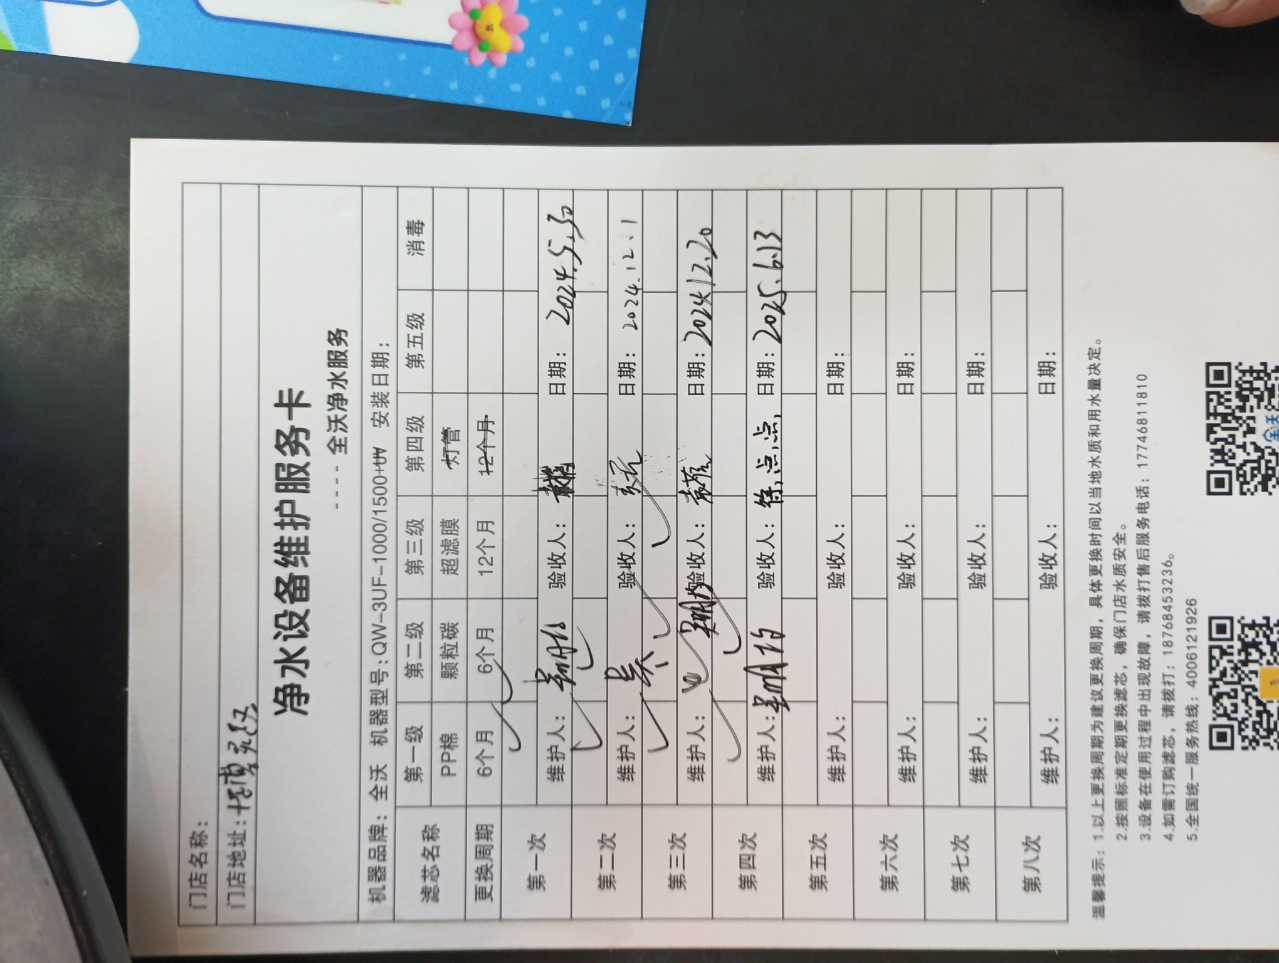 门店名称：
门店地址：
净水设备维护服务卡
---- 全沃净水服务
机器品牌：全沃 机器型号：QW-3UF-1000/1500+UV 安装日期：
滤芯名称 第一级 第二级 第三级 第四级 第五级 消毒
PP棉 颗粒碳 超滤膜 灯管
更换周期 6个月 6个月 12个月 12个月
第一次 维护人： 验收人： 日期：2024.5.30
第二次 维护人：吴 验收人： 日期：2024.12.1
第三次 维护人： 验收人： 日期：2024.12.20
第四次 维护人： 验收人：徐点点 日期：2025.6.13
第五次 维护人： 验收人： 日期：
第六次 维护人： 验收人： 日期：
第七次 维护人： 验收人： 日期：
第八次 维护人： 验收人： 日期：
温馨提示：1.以上更换周期为建议更换周期，具体更换时间以当地水质和用水量决定。
2.按照标准定期更换滤芯，确保门店水质安全。
3.设备在使用过程中出现故障，请拨打售后服务电话：17746811810
4.如需订购滤芯，请拨打：18768453236。
5.全国统一服务热线：4006121926
全沃